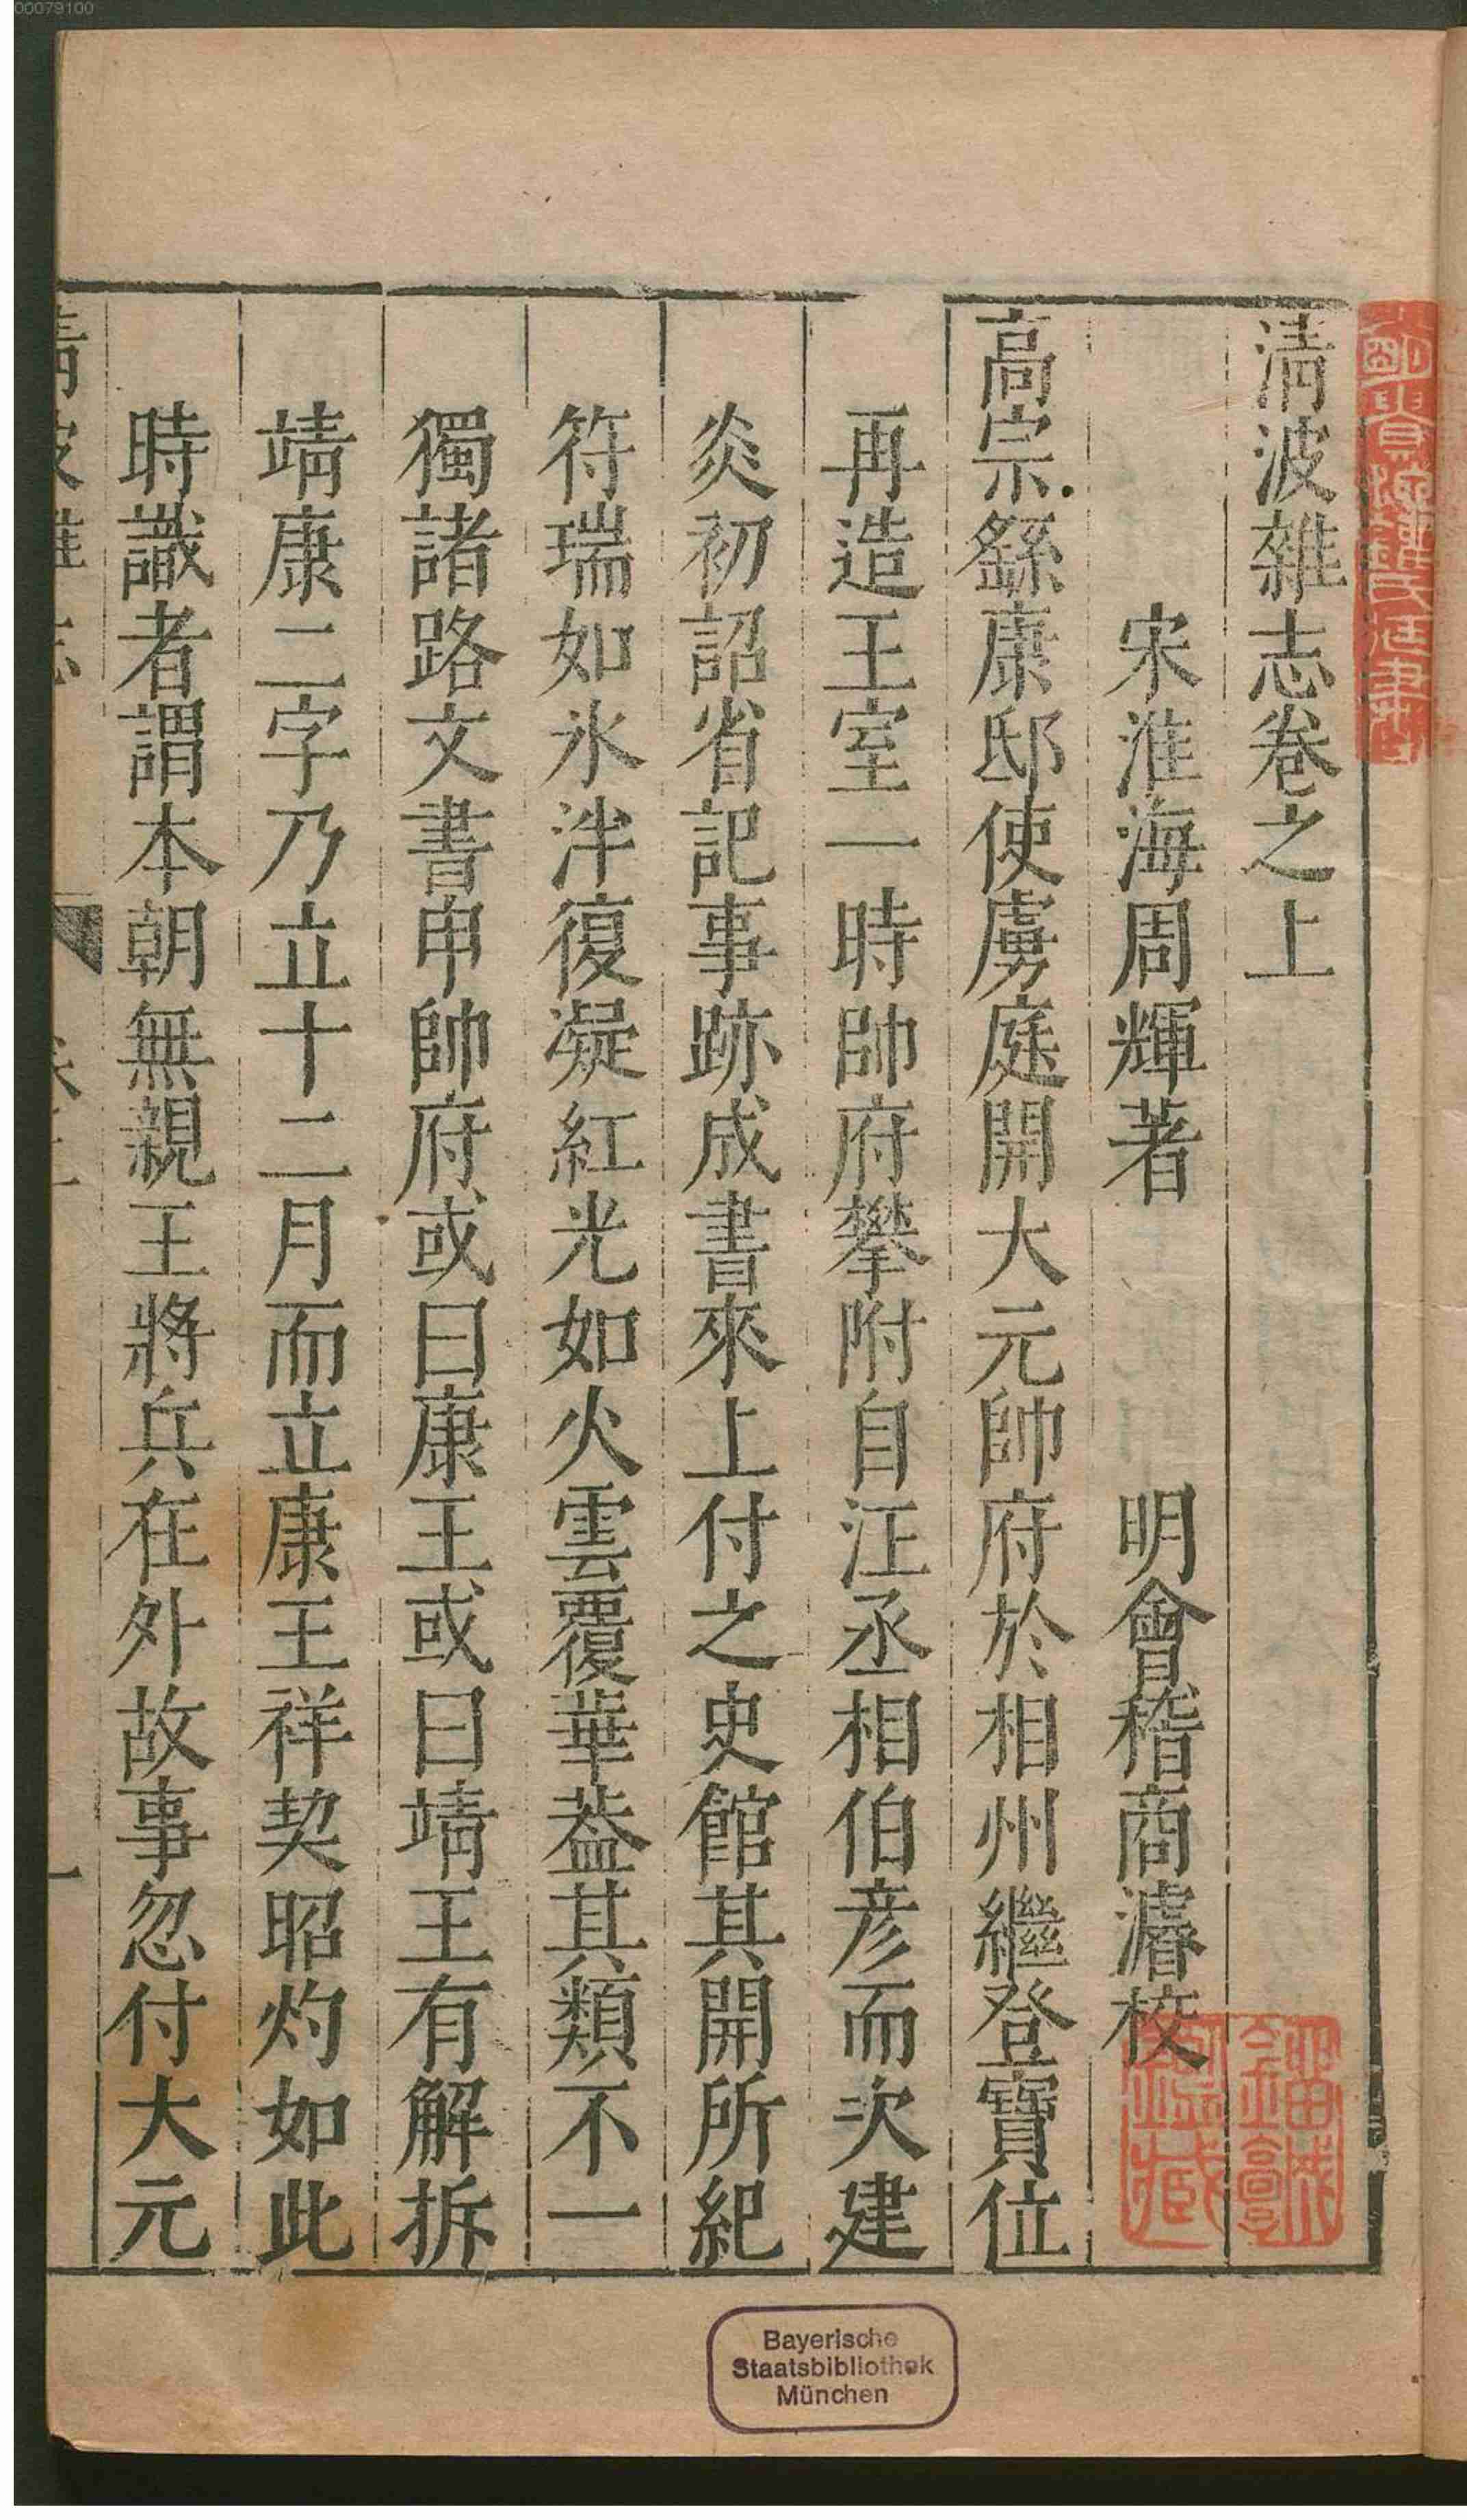 清波雜志卷之上
宋淮海周輝著 明會稽商濬校
高宗繇康邸使虜庭開大元帥府於相州繼登寶位
再造王室一時帥府攀附自汪丞相伯彦而次建
炎初詔省記事跡成書來上付之史館其開所紀
符瑞如氷泮復凝紅光如火雲覆華葢其類不一
獨諸路文書申帥府或曰康王或曰靖王有解拆
靖康二字乃立十二月而立康王祥契昭灼如此
時識者謂本朝無親王將兵在外故事忽付大元
Bayerische
Staatsbibliothek
München
00079100